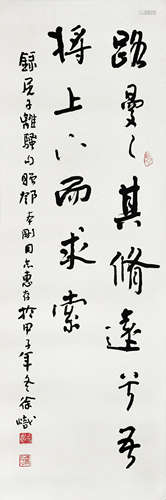 路曼曼其脩遠兮吾
將上下而求索
錄屈子離騷句贈鄧本剛同志惠存於甲子年冬徐熾